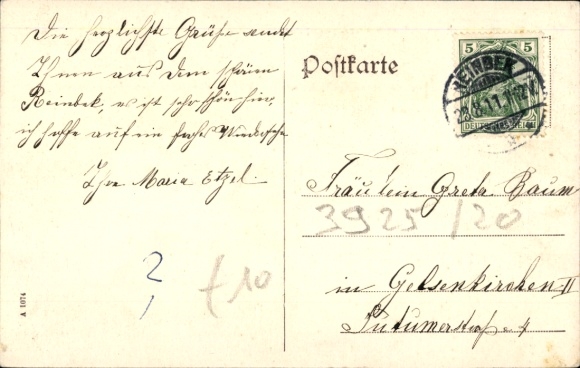 Die herzlichste Grüße sendet
Ihnen aus dem schönen
Reinbek, es ist sehr schön hier,
ich hoffe auf ein frohes Wiedersehn
Ihre Maria Etzel.
Postkarte
5 5
REINBEK
11
DEUTSCHES REICH
Fräulein Greta Baum
3925/20
in Gelsenkirchen II
4
2
f 10
A 1074